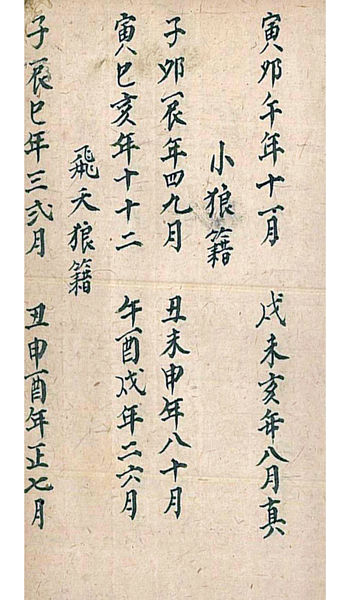 寅卯午年十一月 戌未亥年八月真
小狼籍
子卯辰年四九月 丑未申年八十月
寅巳亥年十十二 午酉戌年二六月
飛天狼籍
子辰巳年三弍月 丑申酉年正七月